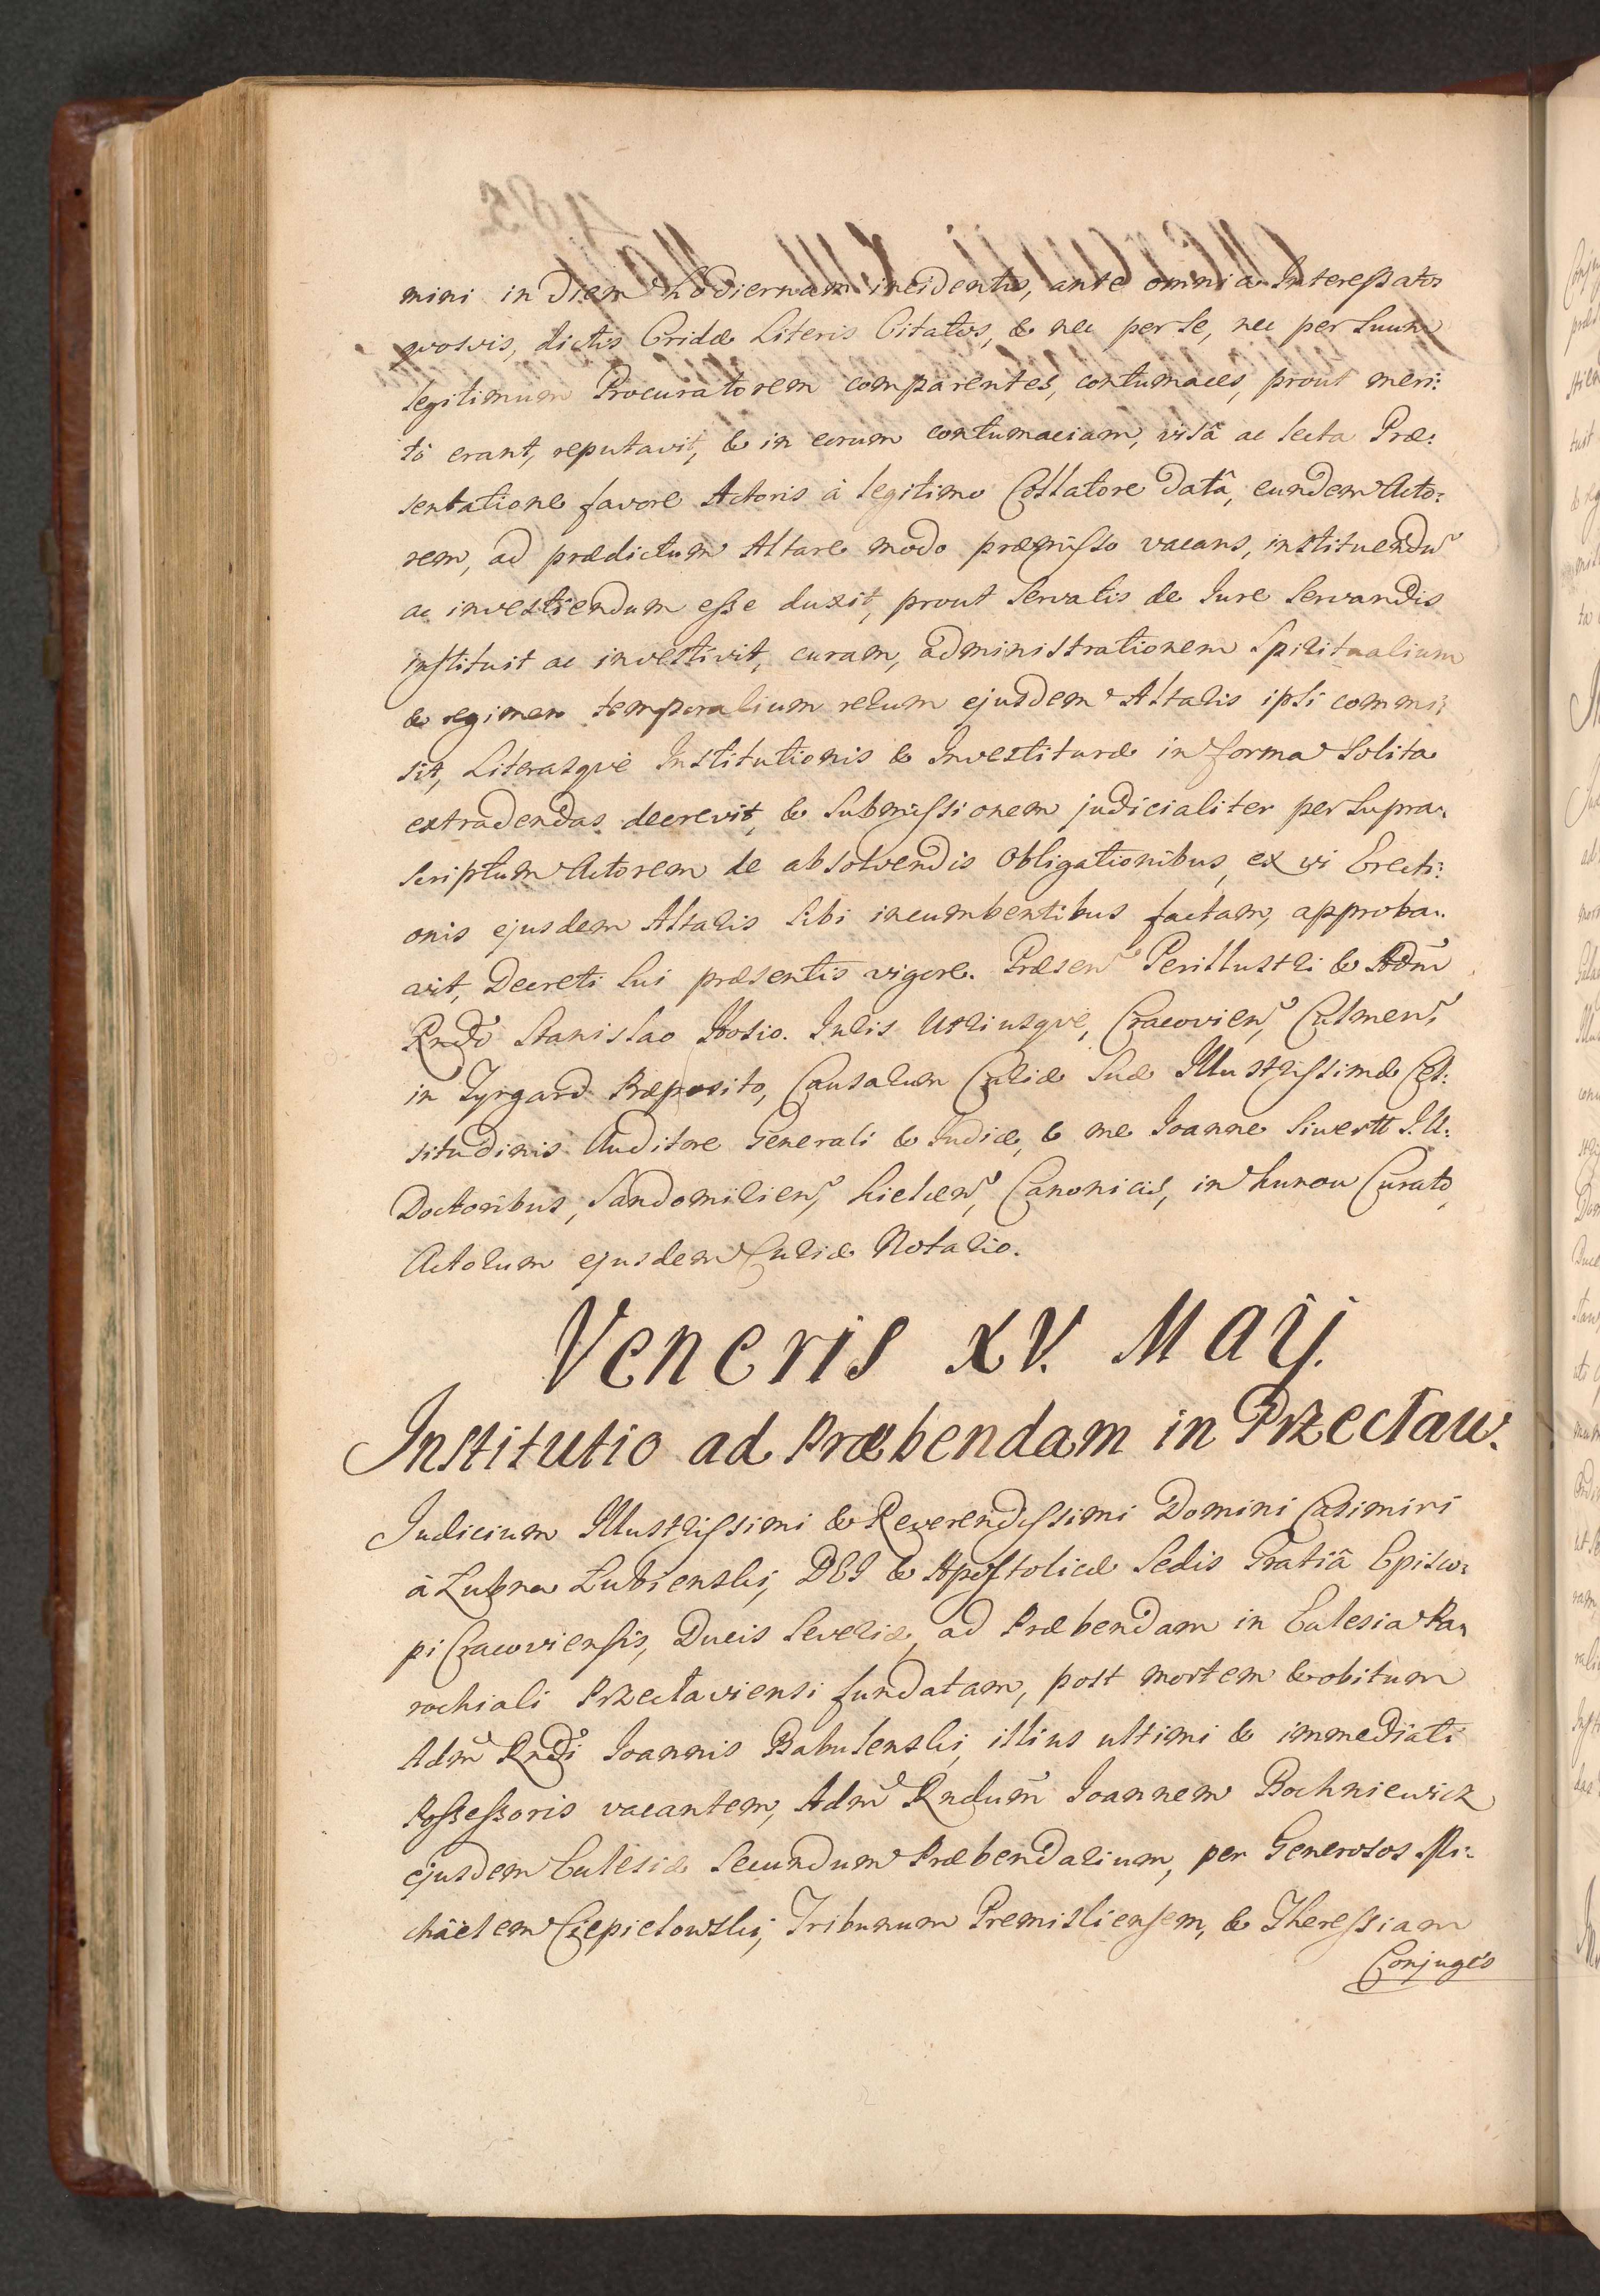 mini in diem hodiernam incidentis, ante omnia Interessatos
quosvis, dictis Cridæ Literis Citatos, & nec per se, nec per suum
legitimum Procuratorem comparentes, contumaces, prout meri:
tò erant, reputavit, & in eorum contumaciam, visâ ac lecta Præ:
sentatione favore Actoris à legitimo Collatore datâ, eundem Acto:
rem, ad prædictum Altare modo præmisso vacans, instituendū
ac investiendum esse duxit, prout servatis de Iure servandis
instituit ac investivit, curam, administrationem Spiritualium
& regimen temporalium rerum ejusdem Altaris ipsi commi:
sit, Literasqve Institutionis & Investituræ in forma solita
extradendas decrevit, & submissionem judicialiter per supra:
scriptum Actorem de absolvendis Obligationibus, ex vi Erecti:
onis ejusdem Altaris sibi incumbentibus factam, approba:
vit, Decreti sui præsentis vigore. Præsen Perillustri & Adm̄
Rndo Stanislao Hosio. Iuris Utriusqve, Cracovien, Culmen,
in Tyrgard Præposito, Causarum Curiæ Suæ Illustrissimæ Cel:
situdinis Auditore Generali & Iudice, & me Ioanne Siwertt I.U.
Doctoribus, Sandomirien, Kielcen, Canonicis, in Lunow Curato,
Actorum ejusdem Curiæ Notario.
Veneris XV. Maij.
Institutio ad Præbendam in Przecław.
Iudicium Illustrissimi & Reverendissimi Domini Casimiri
à Łubna Łubienski, DEI & Apostolicæ Sedis Gratiâ Episco:
pi Cracoviensis, Ducis Severiæ, ad Præbendam in Ecclesia Pa:
rochiali Przecłaviensi fundatam, post mortem & obitum
Adm̄ Rndi Ioannis Babulenski, illius ultimi & immediati
Possessoris vacantem, Adm̄ Rndum̄ Ioannem Bochniewicz
ejusdem Ecclesiæ secundum Præbendarium, per Generosos Mi:
chaëlem Czepielowski, Tribunum Premisliensem, & Theressiam
Conjuges